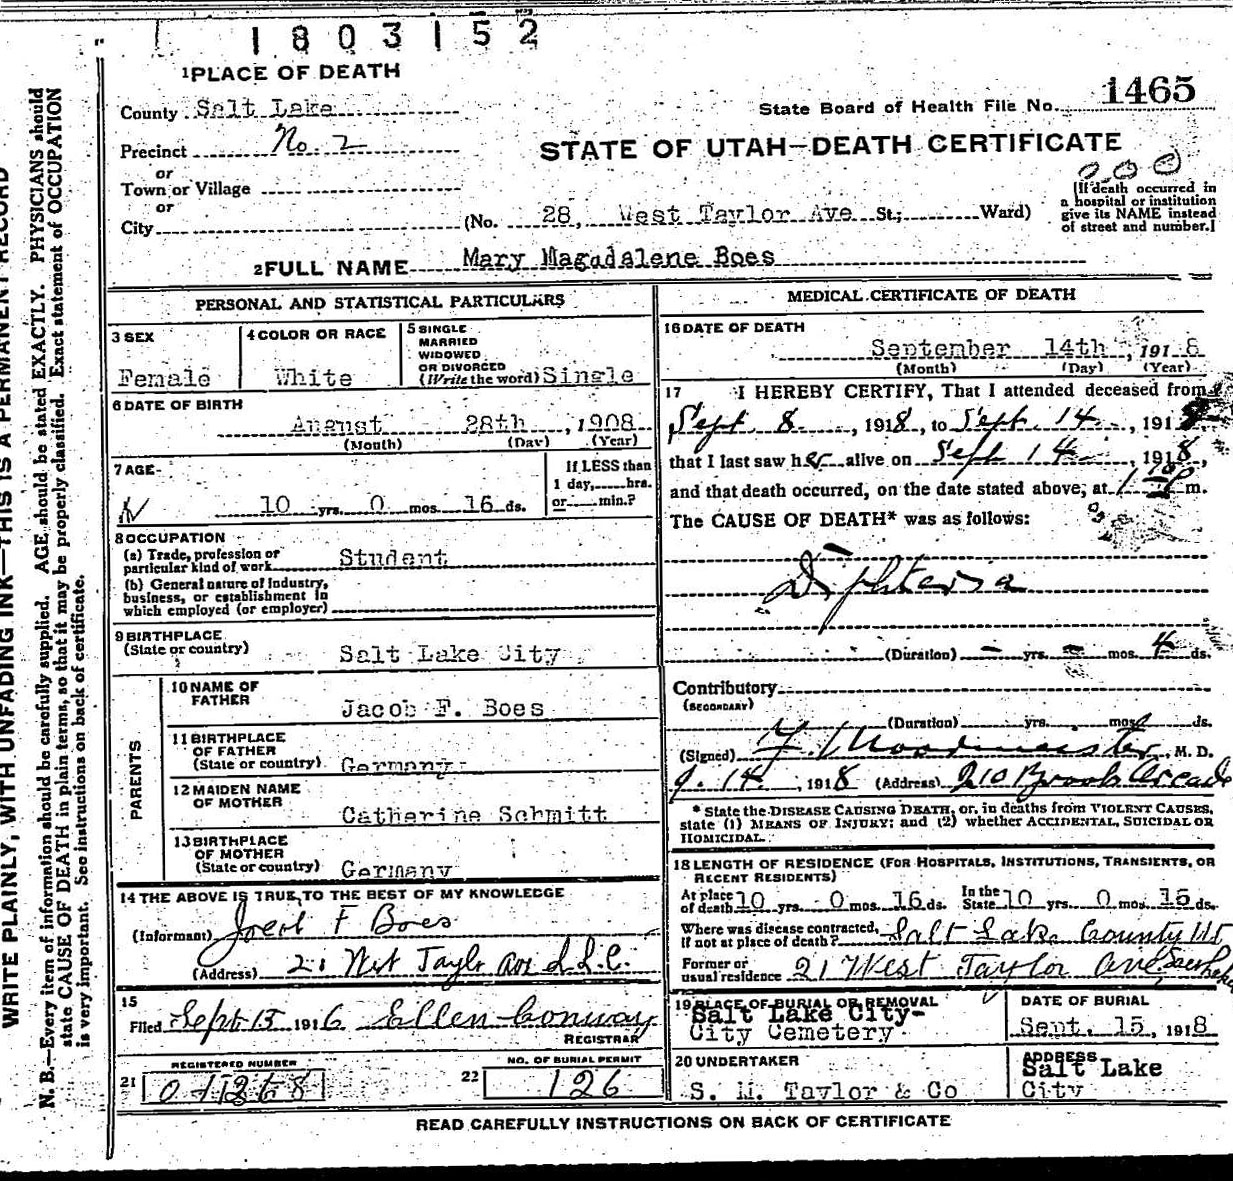 1803152
1 PLACE OF DEATH
1465
State Board of Health File No.
County Salt Lake
Precinct No. 2
STATE OF UTAH—DEATH CERTIFICATE
or
Town or Village
or
City
(No. 28, West Taylor Ave St.; Ward)
[If death occurred in
a hospital or institution
give its NAME instead
of street and number.]
2 FULL NAME Mary Magadalene Boes
PERSONAL AND STATISTICAL PARTICULARS
3 SEX
Female
4 COLOR OR RACE
White
5 SINGLE
MARRIED
WIDOWED
OR DIVORCED
(Write the word) Single
6 DATE OF BIRTH
August 28th, 1908
(Month) (Day) (Year)
7 AGE
10 yrs. 0 mos. 16 ds.
If LESS than
1 day, hrs.
or min.?
8 OCCUPATION
(a) Trade, profession or
particular kind of work Student
(b) General nature of Industry,
business, or establishment in
which employed (or employer)
9 BIRTHPLACE
(State or country) Salt Lake City
PARENTS
10 NAME OF
FATHER Jacob F. Boes
11 BIRTHPLACE
OF FATHER
(State or country) Germany
12 MAIDEN NAME
OF MOTHER Catherine Schmitt
13 BIRTHPLACE
OF MOTHER
(State or country) Germany
14 THE ABOVE IS TRUE TO THE BEST OF MY KNOWLEDGE
(Informant) F Boes
(Address) West Taylor Ave S.L.C.
15
Filed Sept 15 1916 Ellen Conway
REGISTRAR
REGISTERED NUMBER
21
NO. OF BURIAL PERMIT
22 126
MEDICAL CERTIFICATE OF DEATH
16 DATE OF DEATH
September 14th, 1918
(Month) (Day) (Year)
17 I HEREBY CERTIFY, That I attended deceased from
Sept 8, 1918, to Sept 14, 1918
that I last saw her alive on Sept 14, 1918,
and that death occurred, on the date stated above, at m.
The CAUSE OF DEATH* was as follows:
Diphteria
(Duration) – yrs. – mos. 4 ds.
Contributory
(SECONDARY)
(Duration) yrs. mos. ds.
(Signed) M. D.
9.14, 1918 (Address) 210 Brooks Arcade
* State the DISEASE CAUSING DEATH, or, in deaths from VIOLENT CAUSES,
state (1) MEANS OF INJURY; and (2) whether ACCIDENTAL, SUICIDAL OR
HOMICIDAL.
18 LENGTH OF RESIDENCE (FOR HOSPITALS, INSTITUTIONS, TRANSIENTS, OR
RECENT RESIDENTS)
At place
of death 10 yrs. 0 mos. 16 ds.
In the
State 10 yrs. 0 mos. 16 ds.
Where was disease contracted,
if not at place of death? Salt Lake County
Former or
usual residence 21 West Taylor Ave
19 PLACE OF BURIAL OR REMOVAL
Salt Lake City-
City Cemetery
DATE OF BURIAL
Sept. 15, 1918
20 UNDERTAKER
S. M. Taylor & Co
ADDRESS
Salt Lake
City
READ CAREFULLY INSTRUCTIONS ON BACK OF CERTIFICATE
WRITE PLAINLY, WITH UNFADING INK—THIS IS A PERMANENT RECORD
N. B.—Every item of information should be carefully supplied. AGE should be stated EXACTLY. PHYSICIANS should
state CAUSE OF DEATH in plain terms, so that it may be properly classified. Exact statement of OCCUPATION
is very important. See instructions on back of certificate.